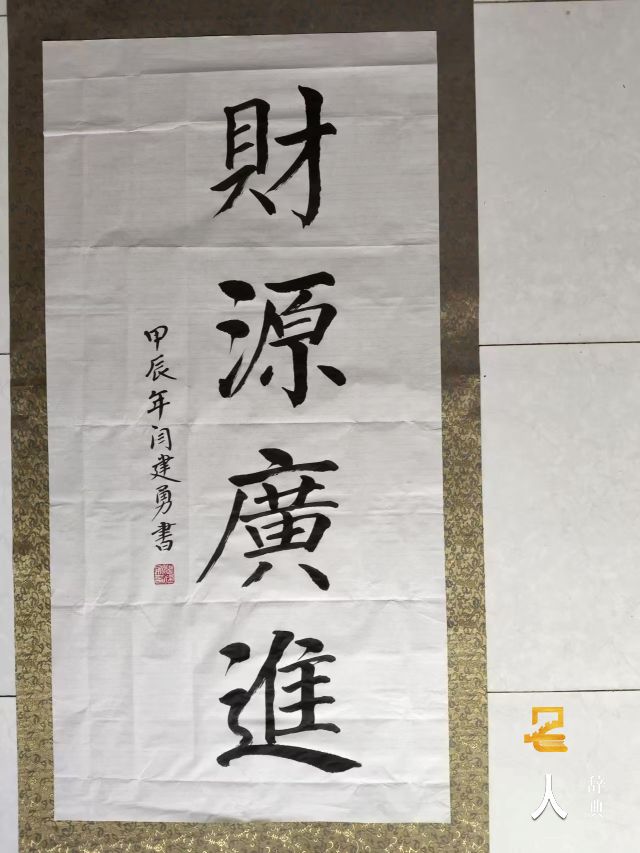 財源廣進
甲辰年闫建勇書
人
辞典